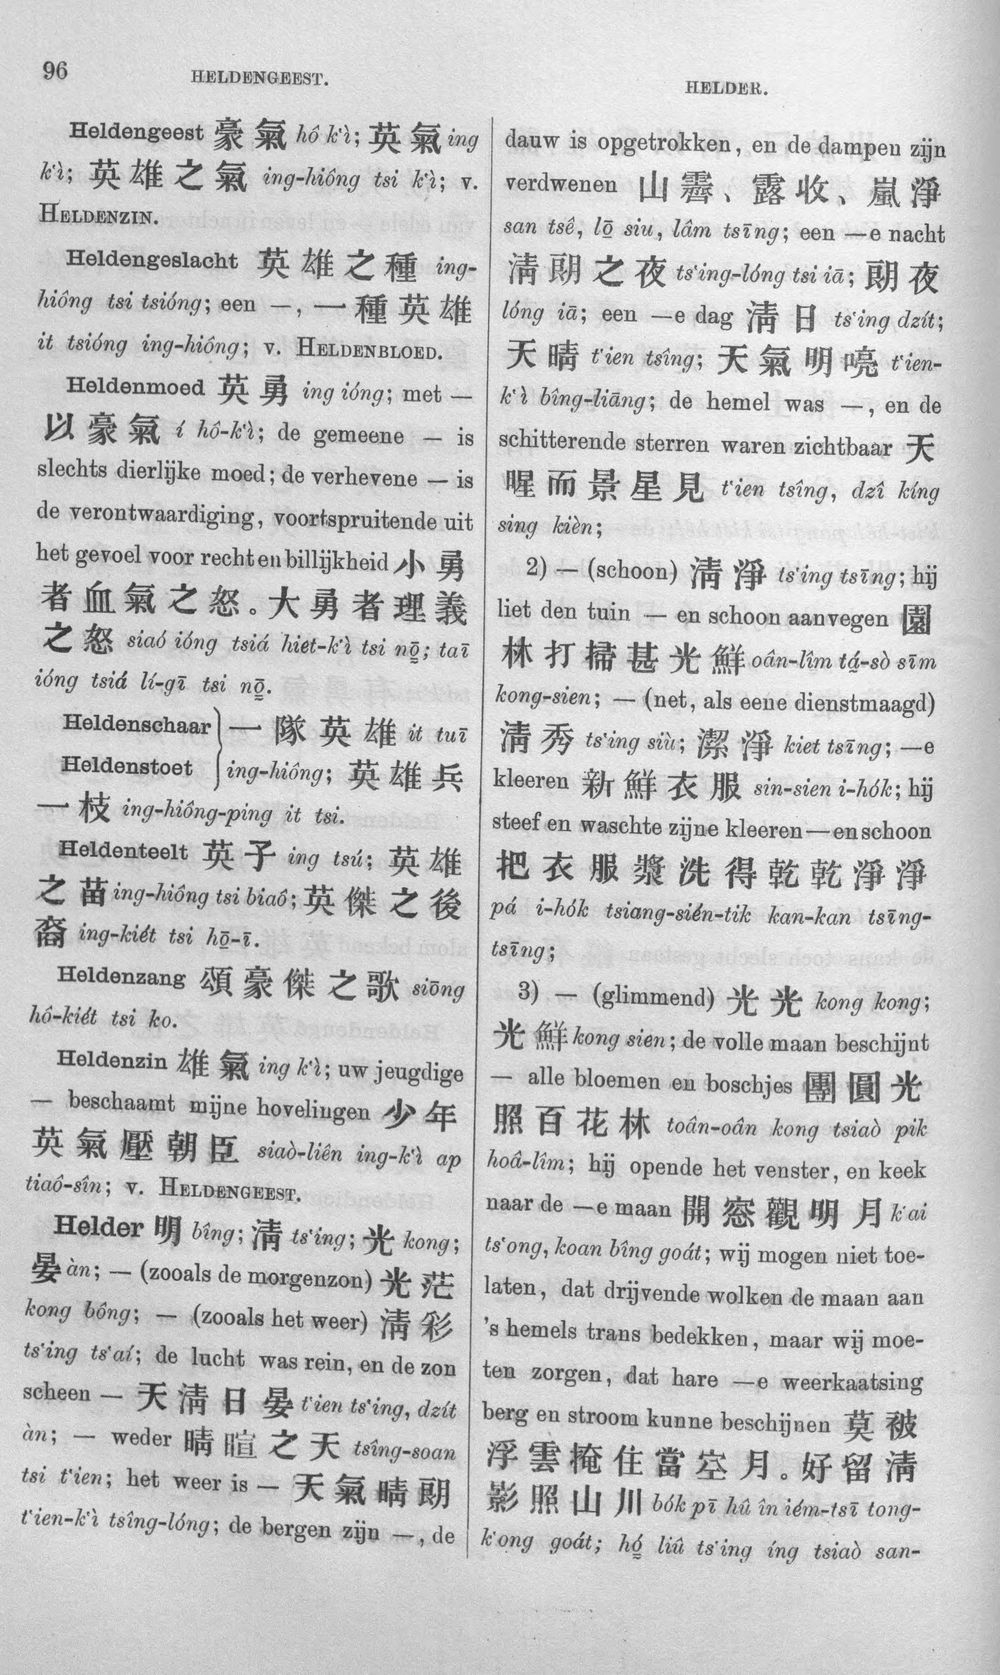 96
HELDENGEEST.
HELDER.
Heldengeest 豪氣 hô k‘ì; 英氣 ing
k‘ì; 英雄之氣 ing-hiông tsi k‘ì; v.
HELDENZIN.
Heldengeslacht 英雄之種 ing-
hiông tsi tsióng; een —, 一種英雄
it tsióng ing-hióng; v. HELDENBLOED.
Heldenmoed 英勇 ing ióng; met —
以豪氣 í hô-k‘ì; de gemeene — is
slechts dierlijke moed; de verhevene — is
de verontwaardiging, voortspruitende uit
het gevoel voor recht en billijkheid 小勇
者血氣之怒。大勇者理義
之怒 siaó ióng tsiá hiet-k‘ì tsi nō͇; taī
ióng tsiá lí-gī tsi nō͇.
Heldenschaar} 一隊英雄 it tuī
Heldenstoet } ing-hiông; 英雄兵
一枝 ing-hiông-ping it tsi.
Heldenteelt 英子 ing tsú; 英雄
之苗 ing-hiông tsi biaô; 英傑之後
裔 ing-kiét tsi hō͇-ī.
Heldenzang 頌豪傑之歌 siōng
hô-kiét tsi ko.
Heldenzin 雄氣 ing k‘ì; uw jeugdige
— beschaamt mijne hovelingen 少年
英氣壓朝臣 siaò-liên ing-k‘ì ap
tiaô-sîn; v. HELDENGEEST.
Helder 明 bîng; 淸 ts‘ing; 光 kong;
晏 àn; — (zooals de morgenzon) 光茫
kong bông; — (zooals het weer) 淸彩
ts‘ing ts‘aí; de lucht was rein, en de zon
scheen — 天淸日晏 t‘ien ts‘ing, dzít
àn; — weder 晴暄之天 tsîng-soan
tsi t‘ien; het weer is — 天氣晴朗
t‘ien-k‘ì tsîng-lóng; de bergen zijn —, de
dauw is opgetrokken, en de dampen zijn
verdwenen 山霽、露收、嵐淨
san tsê, lō͇ siu, lâm tsīng; een —e nacht
淸朗之夜 ts‘ing-lóng tsi iā; 朗夜
lóng iā; een —e dag 淸日 ts‘ing dzít;
天晴 t‘ien tsîng; 天氣明喨 t‘ien-
k‘ì bîng-liāng; de hemel was —, en de
schitterende sterren waren zichtbaar 天
暒而景星見 t‘ien tsîng, dzî kíng
sing kièn;
2) — (schoon) 淸淨 ts‘ing tsīng; hij
liet den tuin — en schoon aanvegen 園
林打掃甚光鮮 oân-lîm tá̱-sò sīm
kong-sien; — (net, als eene dienstmaagd)
淸秀 ts‘ing siù; 潔淨 kiet tsīng; —e
kleeren 新鮮衣服 sin-sien i-hók; hij
steef en waschte zijne kleeren — en schoon
把衣服漿洗得乾乾淨淨
pá i-hók tsiang-sién-tik kan-kan tsīng-
tsīng;
3) — (glimmend) 光光 kong kong;
光鮮 kong sien; de volle maan beschijnt
— alle bloemen en boschjes 團圓光
照百花林 toân-oân kong tsiaò pik
hoâ-lîm; hij opende het venster, en keek
naar de —e maan 開窓觀明月 k‘ai
ts‘ong, koan bîng goát; wij mogen niet toe-
laten, dat drijvende wolken de maan aan
’s hemels trans bedekken, maar wij moe-
ten zorgen, dat hare —e weerkaatsing
berg en stroom kunne beschijnen 莫被
浮雲掩住當空月。好留淸
影照山川 bók pī hû în iém-tsī tong-
k‘ong goát; hó͇ liû ts‘ing íng tsiaò san-